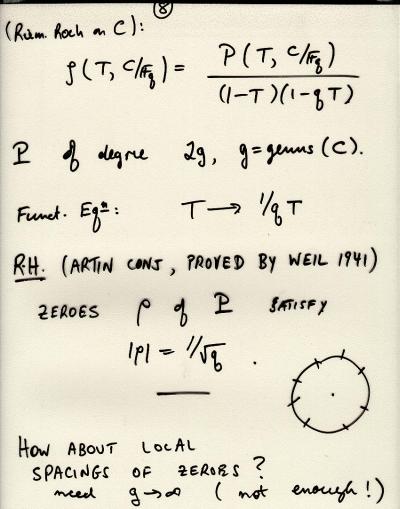 ⑧
(Riem. Roch on C):
ζ(T, C/𝔽q) = P(T, C/𝔽q) / (1-T)(1-qT)
P of degree 2g, g=genus(C).
Funct. Eqn: T → 1/qT
R.H. (ARTIN CONJ, PROVED BY WEIL 1941)
ZEROES ρ of P SATISFY
|ρ| = 1/√q .
HOW ABOUT LOCAL
SPACINGS OF ZEROES?
need g→∞ (not enough!)